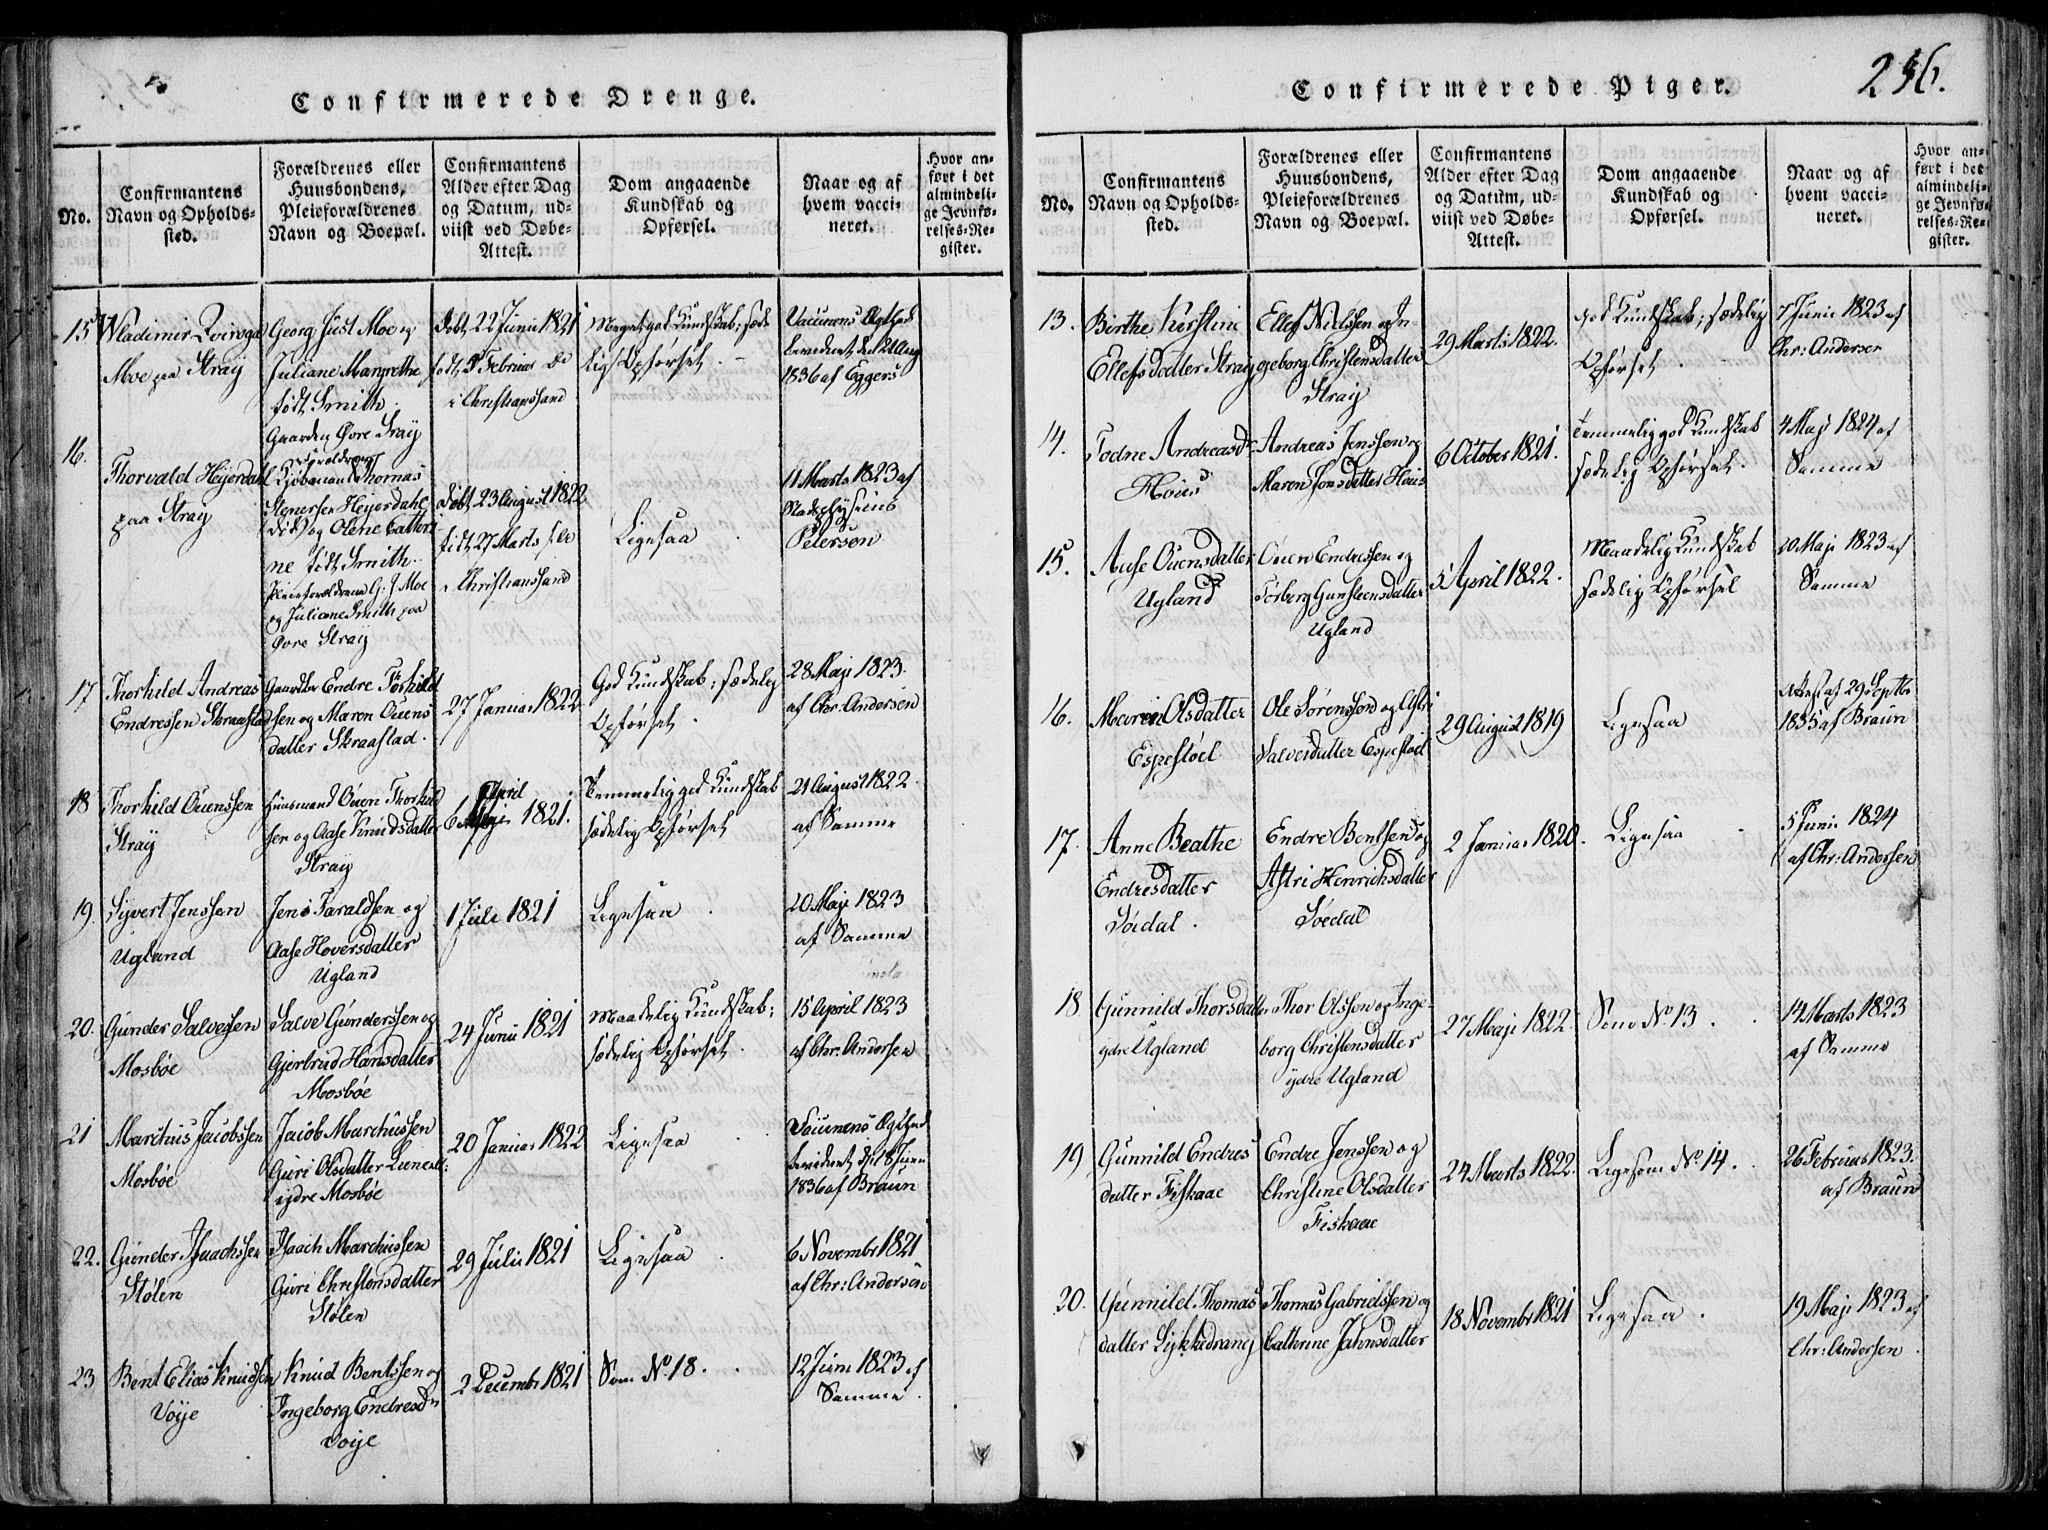 Confirmerede Drenge.
No.
Confirmantens
Navn og Opholds-
sted.
Forældrenes eller
Huusbondens,
Pleieforældrenes
Navn og Boepæl.
Confirmantens
Alder efter Dag
og Datum, ud-
viist ved Døbe-
Attest.
Dom angaaende
Kundskab og
Opførsel.
Naar og af
hvem vacci-
neret.
Hvor an-
ført i det
almindeli-
ge Jevnfø-
relses-Re-
gister.
15
Wladimir
Moe paa Straÿ
Georg Just Moe og
Juliane Margrethe
født Smith.
Gaarden Øvre Straÿ
døbt 22 Junii 1821
født 5 Februar
i Christianssand
Meget god Kundskab; sæde
lig Opførsel.
Vaccinens Ægthed
bevidnet den Aug
1836 af Eggers
16.
Thorvald Heÿerdahl
paa Straÿ
Forældrene
Kjøbmand Thomas
Stenersen Heÿerdahl
død og Olene Cathri
ne født Smith.
Pleieforældrene G. J. Moe
og Juliane Smith paa
Øvre Straÿ
døbt 23 August 1822
født 27 Marts
i Christianssand
Ligesaa
11 Marts 1823 af
Stadsphysicus
Petersen
17
Thorkild Andreas
Endressen Skraastad
Gaardbr Endre Torkild
sen og Maren Ouens
datter Skraastad.
27 Januar 1822
God Kundskab; sædelig
Opførsel.
28 Maji 1823.
af Chr: Andersen
18
Thorkild Ouenssen
Straÿ
Huusmand Ouen Thorkild
sen og Aase Knudsdatter
Straÿ
6 April 1821.
Temmelig god Kundskab
sædelig Opførsel
21 August 1822
af Samme
19.
Sijvert Jenssen
Ugland
Jens Taraldsen og
Aase Hoversdatter
Ugland
1 Juli 1821
Ligesaa
20 Maji 1823
af Samme
20.
Gunder Salvesen
Mosbøe
Salve Gunderssen og
Gjertrud Hansdatter
Mosbøe
24 Junii 1821
Maadelig Kundskab;
sædelig Opførsel.
15 April 1823
af Chr: Andersen
21
Marchus Jacobssen
Mosbøe
Jacob Marchussen
Guri Olsdatter
ijdre Mosbøe
20 Januar 1822
Ligesaa
Vaccinens Ægthed
bevidnet d. 18 Juni
1836 af Braun
22.
Gunder Isaachssen
Stølen
Isaach Marchussen
Guri Christensdatter
Stølen
29 Julii 1821
Ligesaa
6 Novembr 1821
af Chr: Andersen
23
Bent Elias Knudsen
Voÿe
Knud Bentssen og
Ingeborg Endresdr
Voÿe
2 Decembr 1821
Som No 18.
12 Juni 1823 af
Samme.
Confirmerede Piger.
256.
No.
Confirmantens
Navn og Opholds-
sted.
Forældrenes eller
Huusbondens,
Pleieforældrenes
Navn og Boepæl.
Confirmantens
Alder efter Dag
og Datum, ud-
viist ved Døbe-
Attest.
Dom angaaende
Kundskab og
Opførsel.
Naar og af
hvem vacci-
neret.
Hvor an-
ført i det
almindeli-
ge Jevnfø-
relses-Re-
gister.
13.
Birthe Kirstine
Ellefsdatter Straÿ
Ellef Nielssen og In-
geborg Christensdatter
Straÿ
29 Marts 1822.
god Kundskab; sædelig
Opførsel.
7 Junii 1823 af
Chr: Andersen
14.
Todne Andreasdr
Høÿe
Andreas Jenssen og
Maren Jonsdatter
6 October 1821.
Temmelig god Kundskab
sædelig Opførsel.
4 Maji 1824 af
Samme
15.
Aase Ouensdatter
Ugland
Ouen Endressen og
Torberg Gunsteensdatter
Ugland
5 April 1822.
Maadelig Kundskab
sædelig Opførsel
20 Maji 1823 af
Samme
16.
Maren Olsdatter
Espestøel
Ole Sørenssen og Astri
Salvesdatter Espestøel
29 August 1819
Ligesaa
Attest af 29 Septbr
1835 af Braun
17.
Anne Beathe
Endresdatter
Søedal.
Endre Bentsen og
Astri Henrichsdatter
Søedal
2 Januar 1820.
Ligesaa
5 Juni 1824
af Chr: Andersen
18.
Gunnild Thorsdatter
ijdre Ugland
Thor Olssen og Inge-
borg Christensdatter
ijdre Ugland
27 Maji 1822.
Som No 13.
14 Marts 1823
af Samme
19
Gunnild Endres
datter Fiskaae
Endre Jenssen og
Christine Olsdatter
Fiskaae
24 Marts 1822.
Ligesom No 14.
26 Februar 1823.
af Braun
20.
Gunnild Thomas
datter Lÿkkedrang
Thomas Gabrielssen og
Cathrine Jahnsdatter
18 Novembr 1821
Ligesaa.
19 Maji 1823 af
Chr: Andersen.